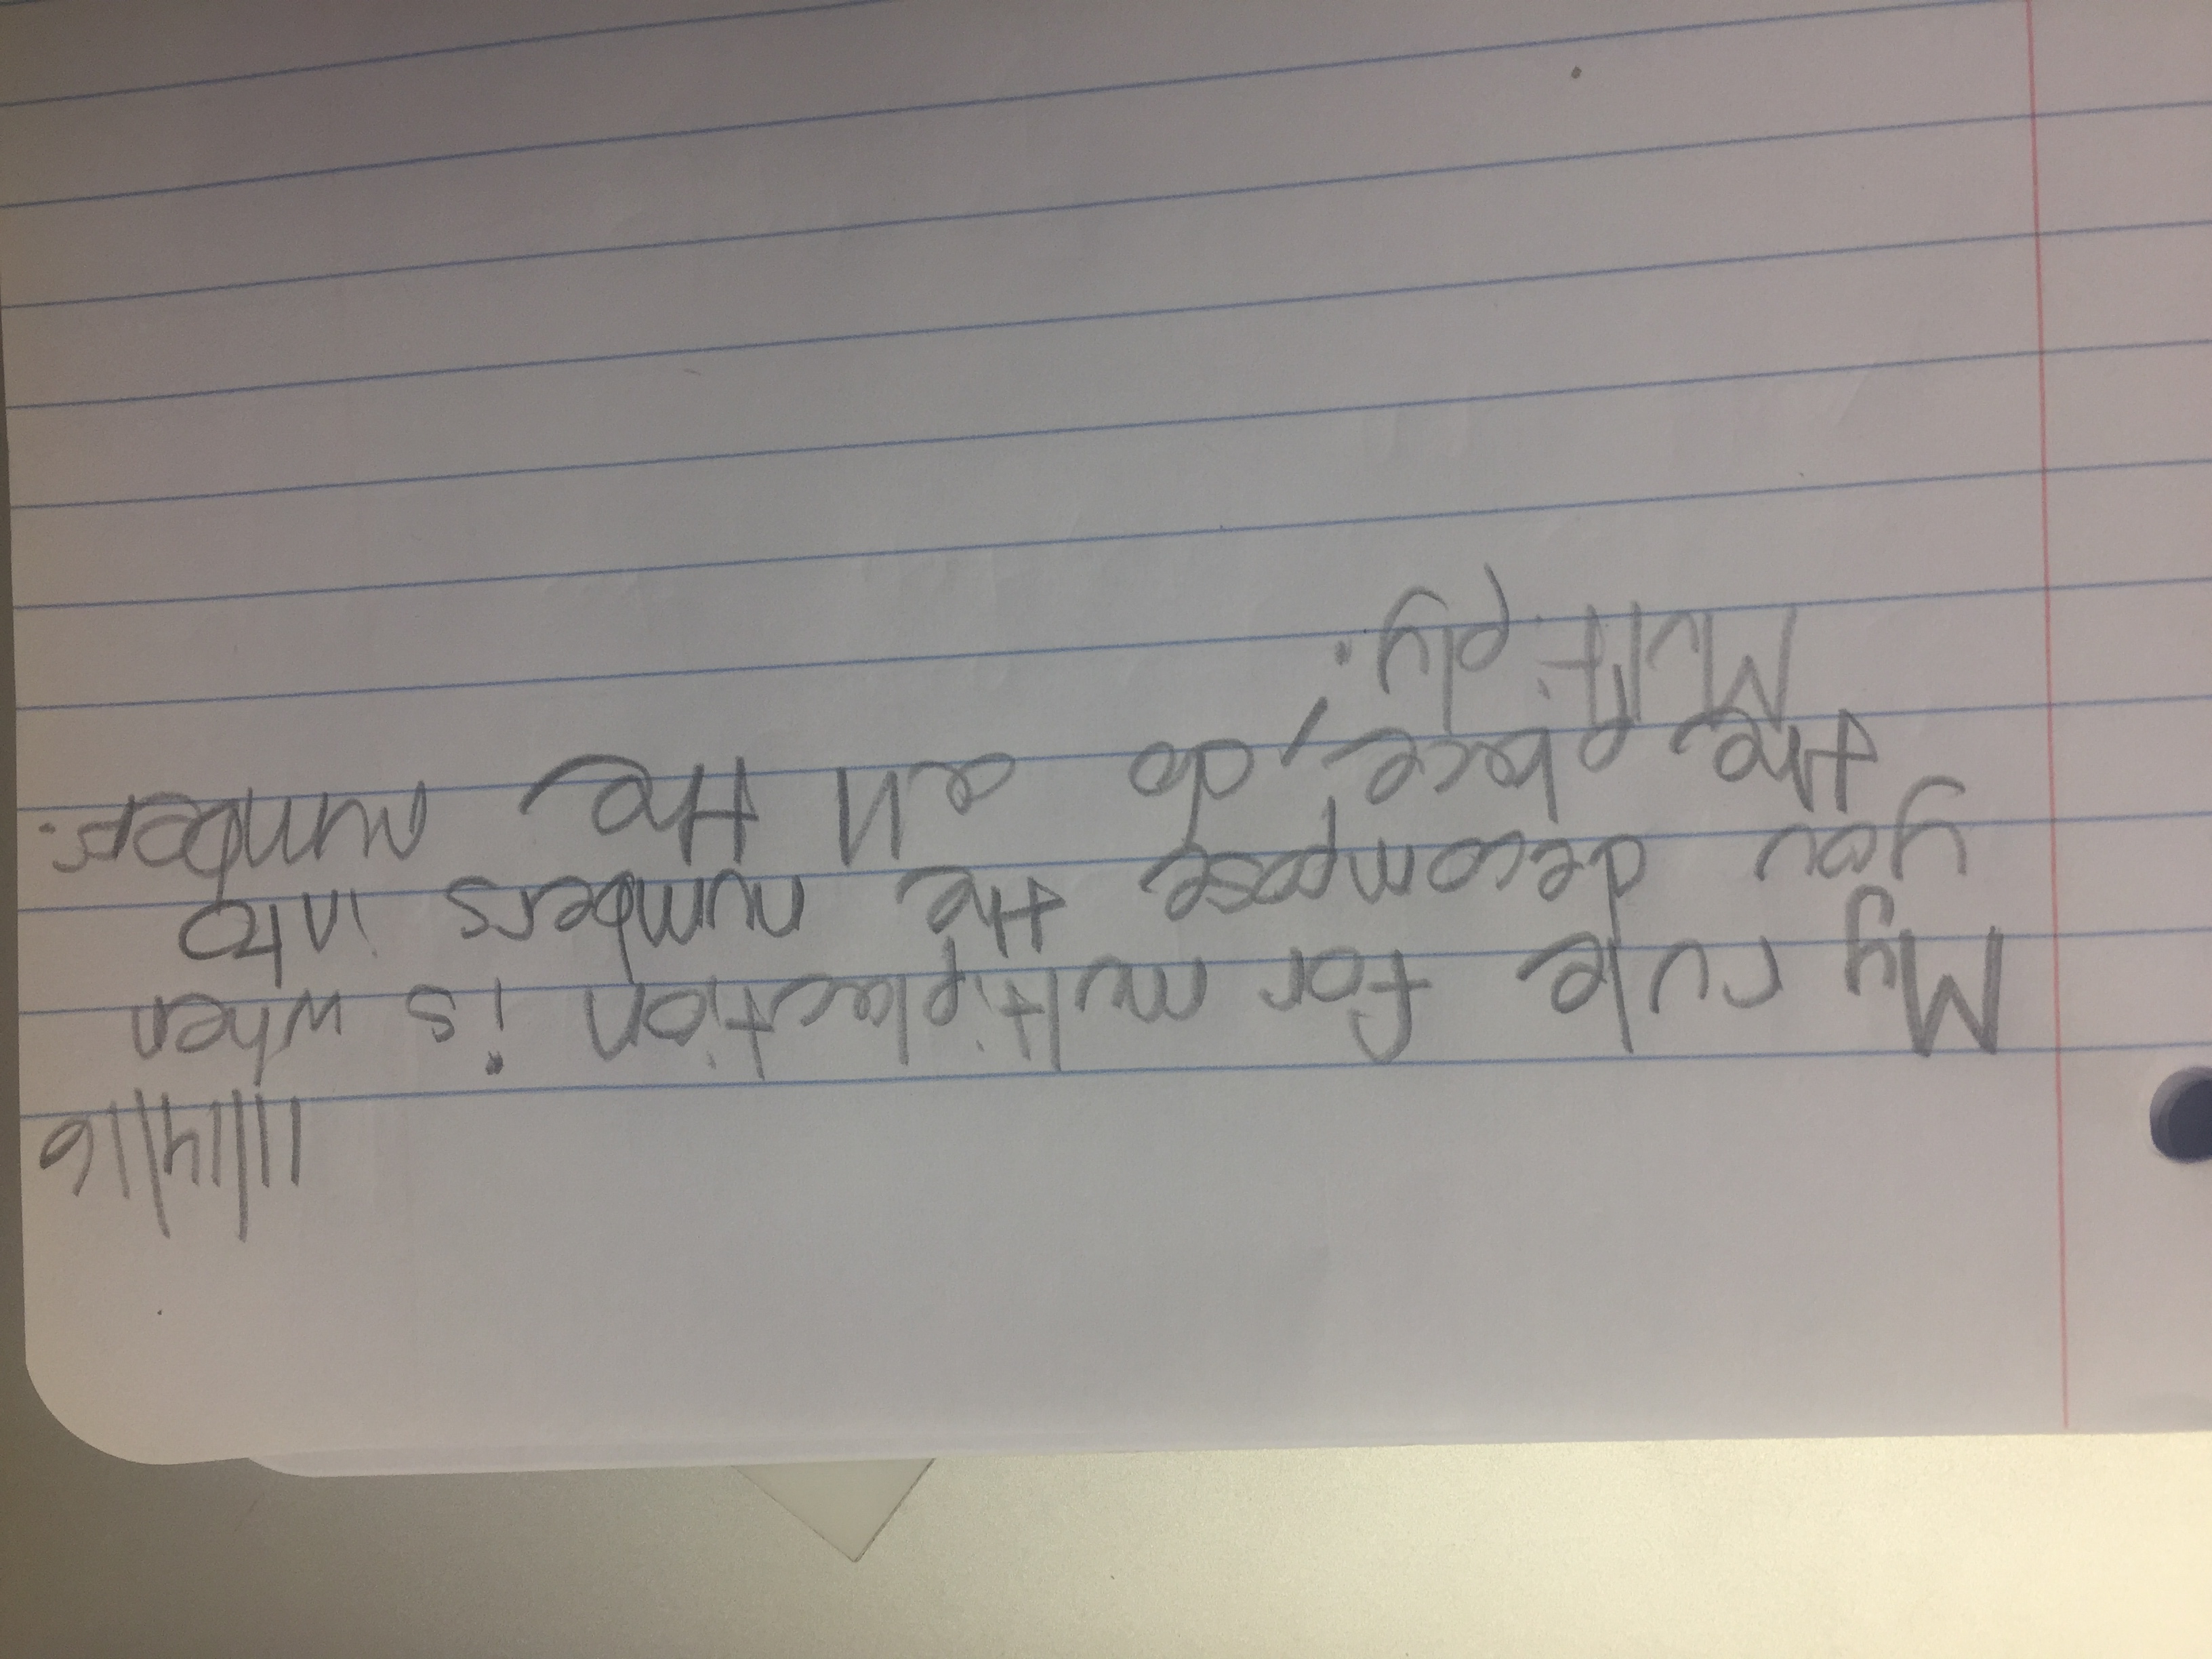 11/14/16
My rule for multiplacation is when
you decompose the numbers into
the place, do all the numbers.
Multiply.